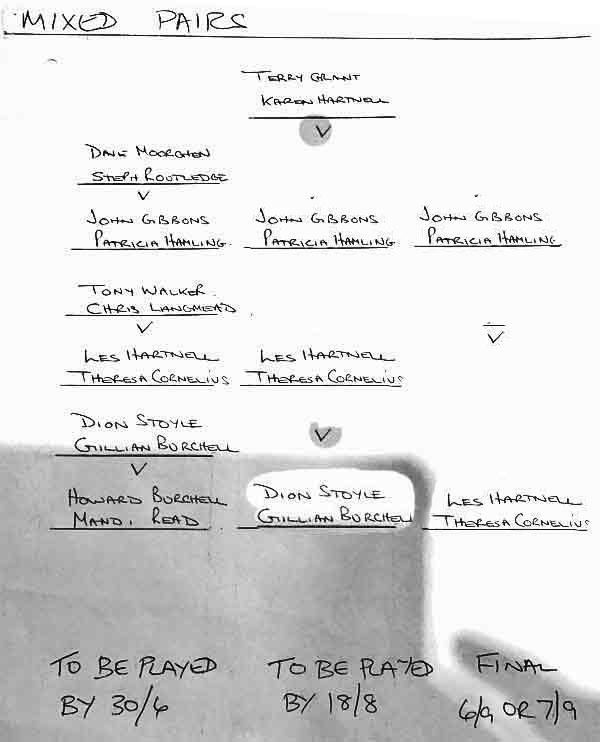 MIXED PAIRS
TERRY GRANT
KAREN HARTNELL
V
DAVE MOORGHEN
STEPH ROUTLEDGE
V
JOHN GIBBONS
PATRICIA HAMLING.
JOHN GIBBONS
PATRICIA HAMLING
JOHN GIBBONS
PATRICIA HAMLING
TONY WALKER.
CHRIS LANGMEAD
V
V
LES HARTNELL
THERESA CORNELIUS
LES HARTNELL
THERESA CORNELIUS
DION STOYLE
GILLIAN BURCHELL
V
V
HOWARD BURCHELL
MANDI READ
DION STOYLE
GILLIAN BURCHELL
LES HARTNELL
THERESA CORNELIUS
TO BE PLAYED
BY 30/6
TO BE PLAYED
BY 18/8
FINAL
6/9 OR 7/9